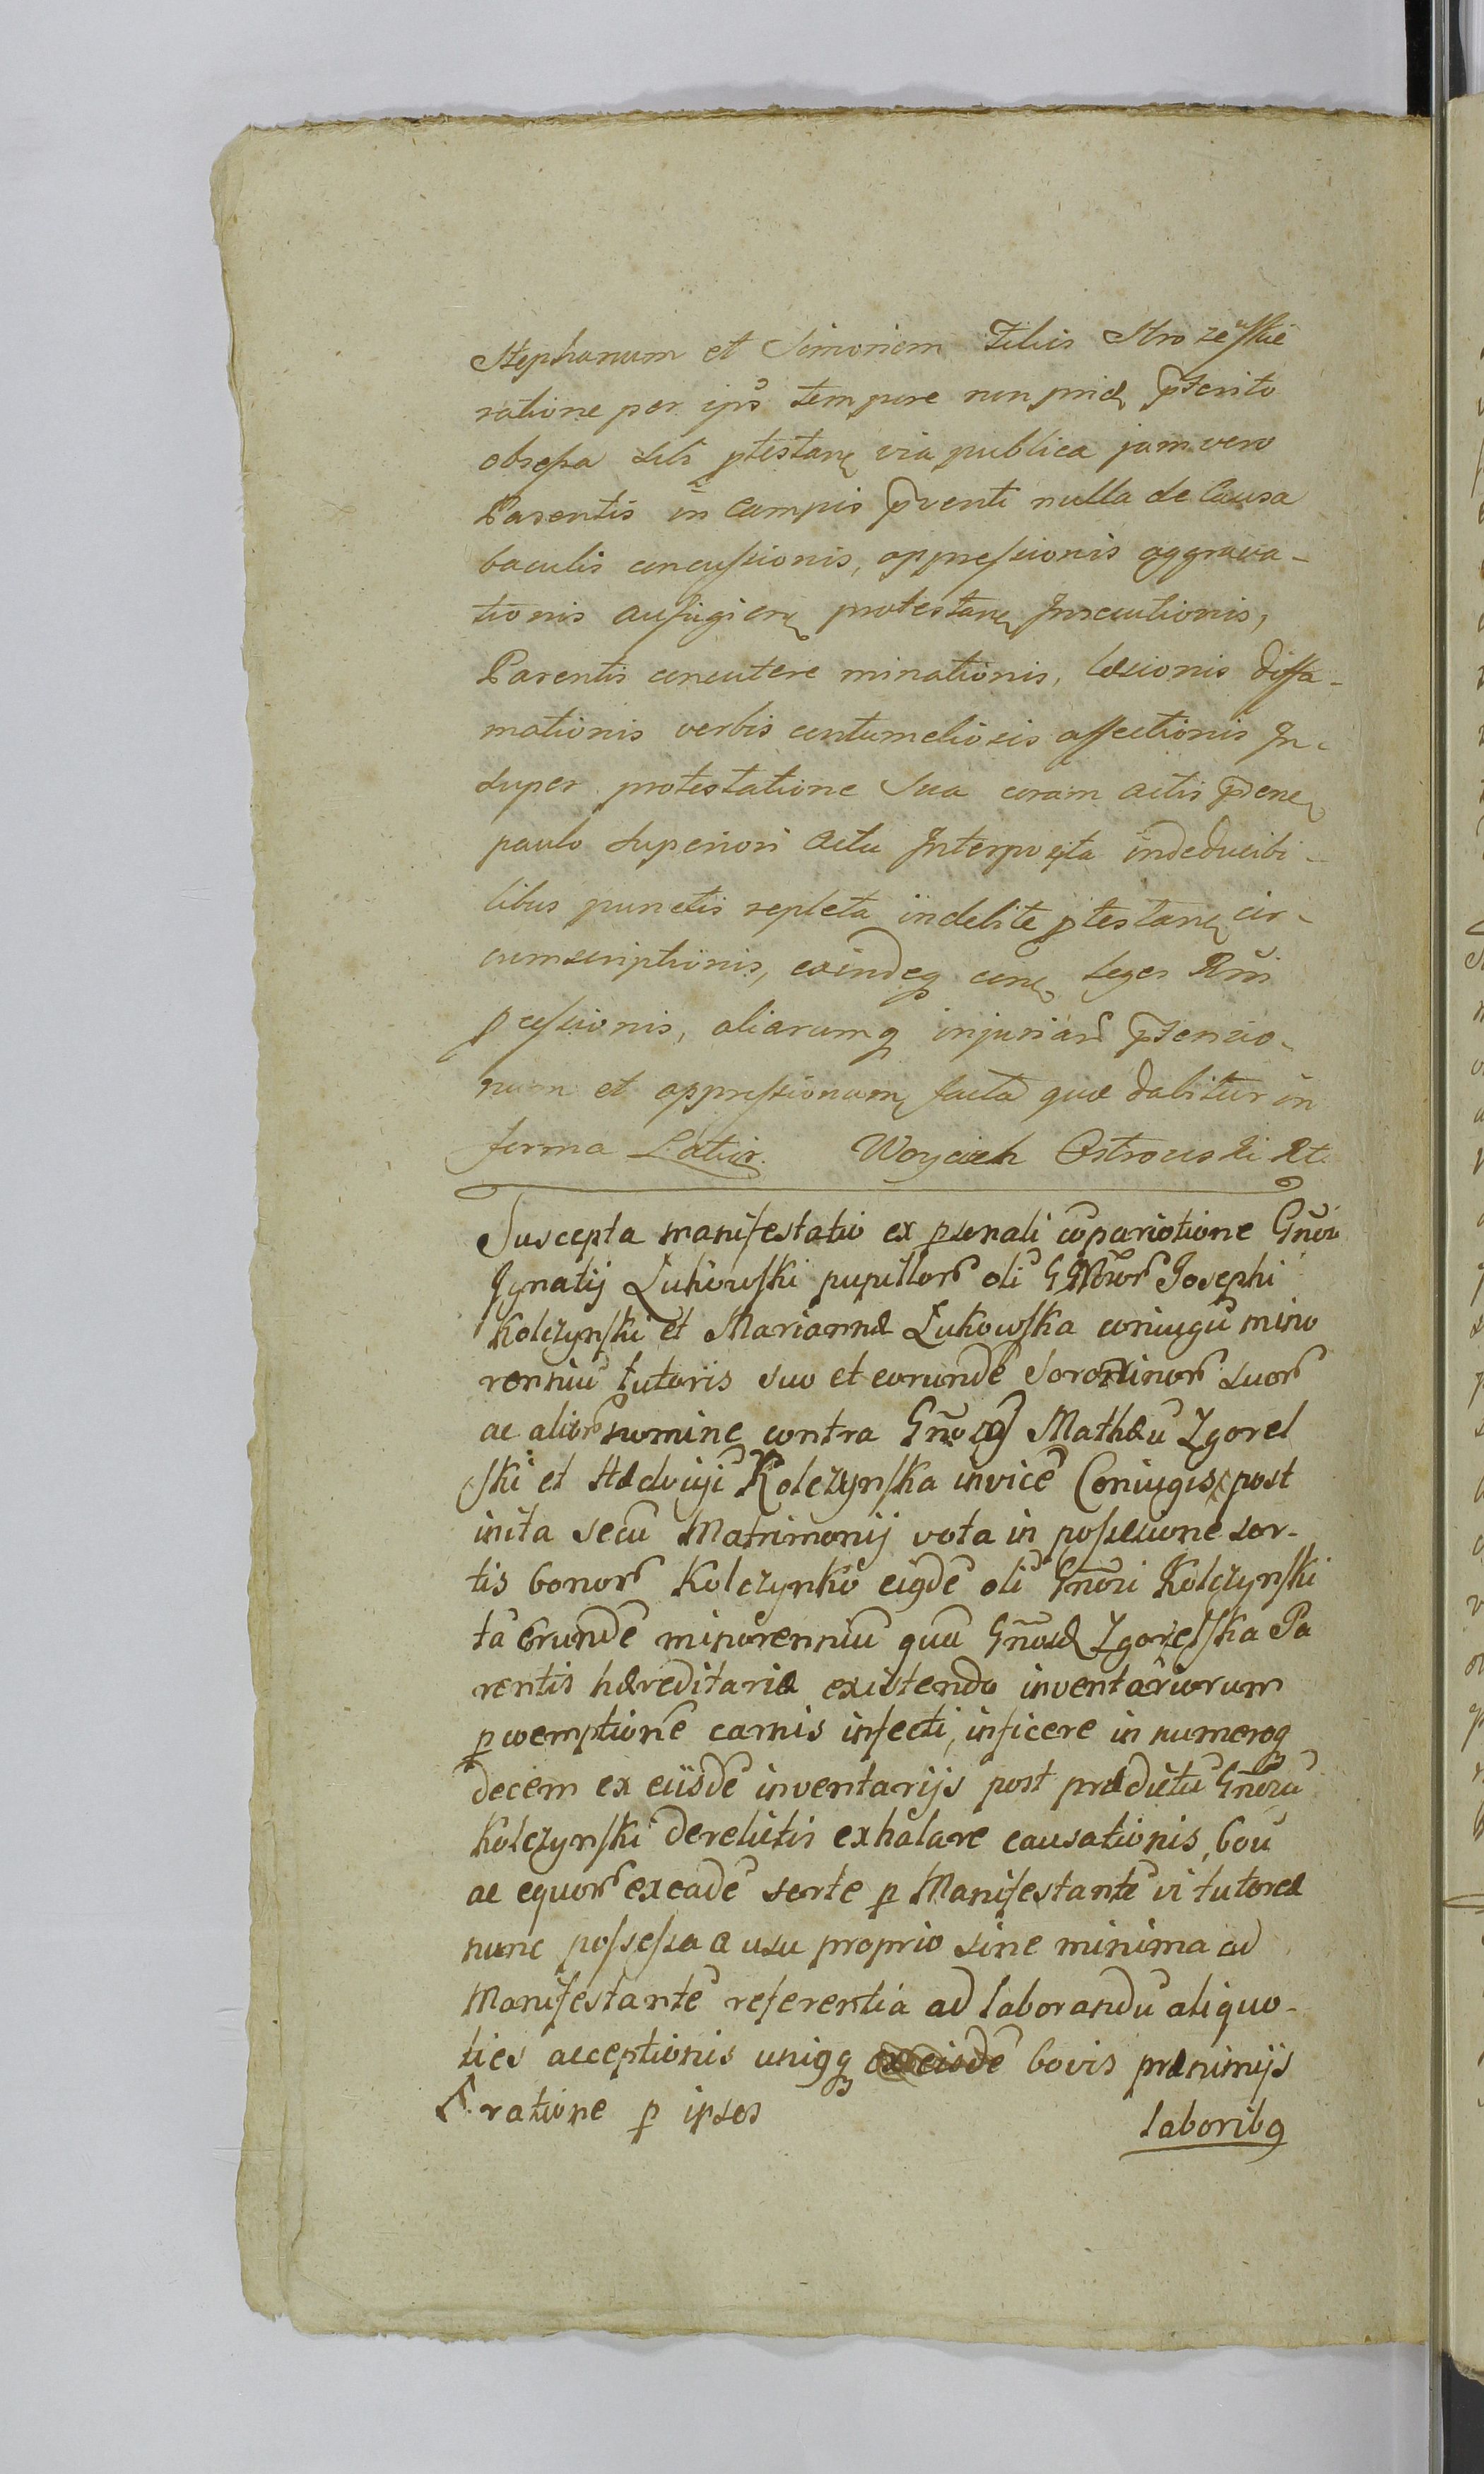 Stephanum et Simoniem Filiis Stro zeuskie
ratione per ips̃ tempore non pride p̃terito
obsessa sibi ptestan via publica jamvero
Parentis in campis p̃venti nulla de Causa
baculis concussionis, oppressionis aggrava-
tionis aufugien protestan Insecutionis,
Parentis concutere minationis, læsionis diffa-
mationis verbis contumeliosis affectionis In-
super protestatione sua coram actis p̃sen
paulo superiori actu Interposita indeducibi-
libus punctis repleta indebite ptestan cir-
cumscriptionis, exindeq con leges Rñi
pcessionis, aliarumq injuriar p̃tensio-
num et oppressionum facta quæ dabitur in
forma Latior. Woyciech Ostrowski Rt.
Suscepta manifestatio ex psonali cõparitione Gnõi
Ignatij Łukowski pupillor oli GGnõror Josephi
Kolczynski et Mariannæ Łukowska coniugũ mino
renniũ tutoris suo et eorundẽ Sororinor suor
ac alior nomine contra Gnõs Mathæũ Zgorel
ski et Hedvigĩ Kolczynska invicẽ Coniuges post
inita secũ Matrimonij vota in possesione sor-
tis bonor Kolczynko eigdẽ oli Gnõsi Kolczynski
tã Erundẽ minorenniũ quã Gnõsæ Zgorelska Pa
rentis hæreditariæ existendo inventariorum
p coemptionẽ carnis infecti, inficere in numeroq
decem ex eiisdẽ inventarijs post prædictũ Gnõsũ
Kolczynski derelictis exhalare causationis, boũ
ac equor exeadẽ sorte p Manifestantẽ vi tutoreæ
nunc possessa a usu proprio sine minima ad
Manifestantẽ referentia ad laborandũ aliquo-
ties acceptionis unigq bovis prænimijs
ratione p ipsos
laborib9